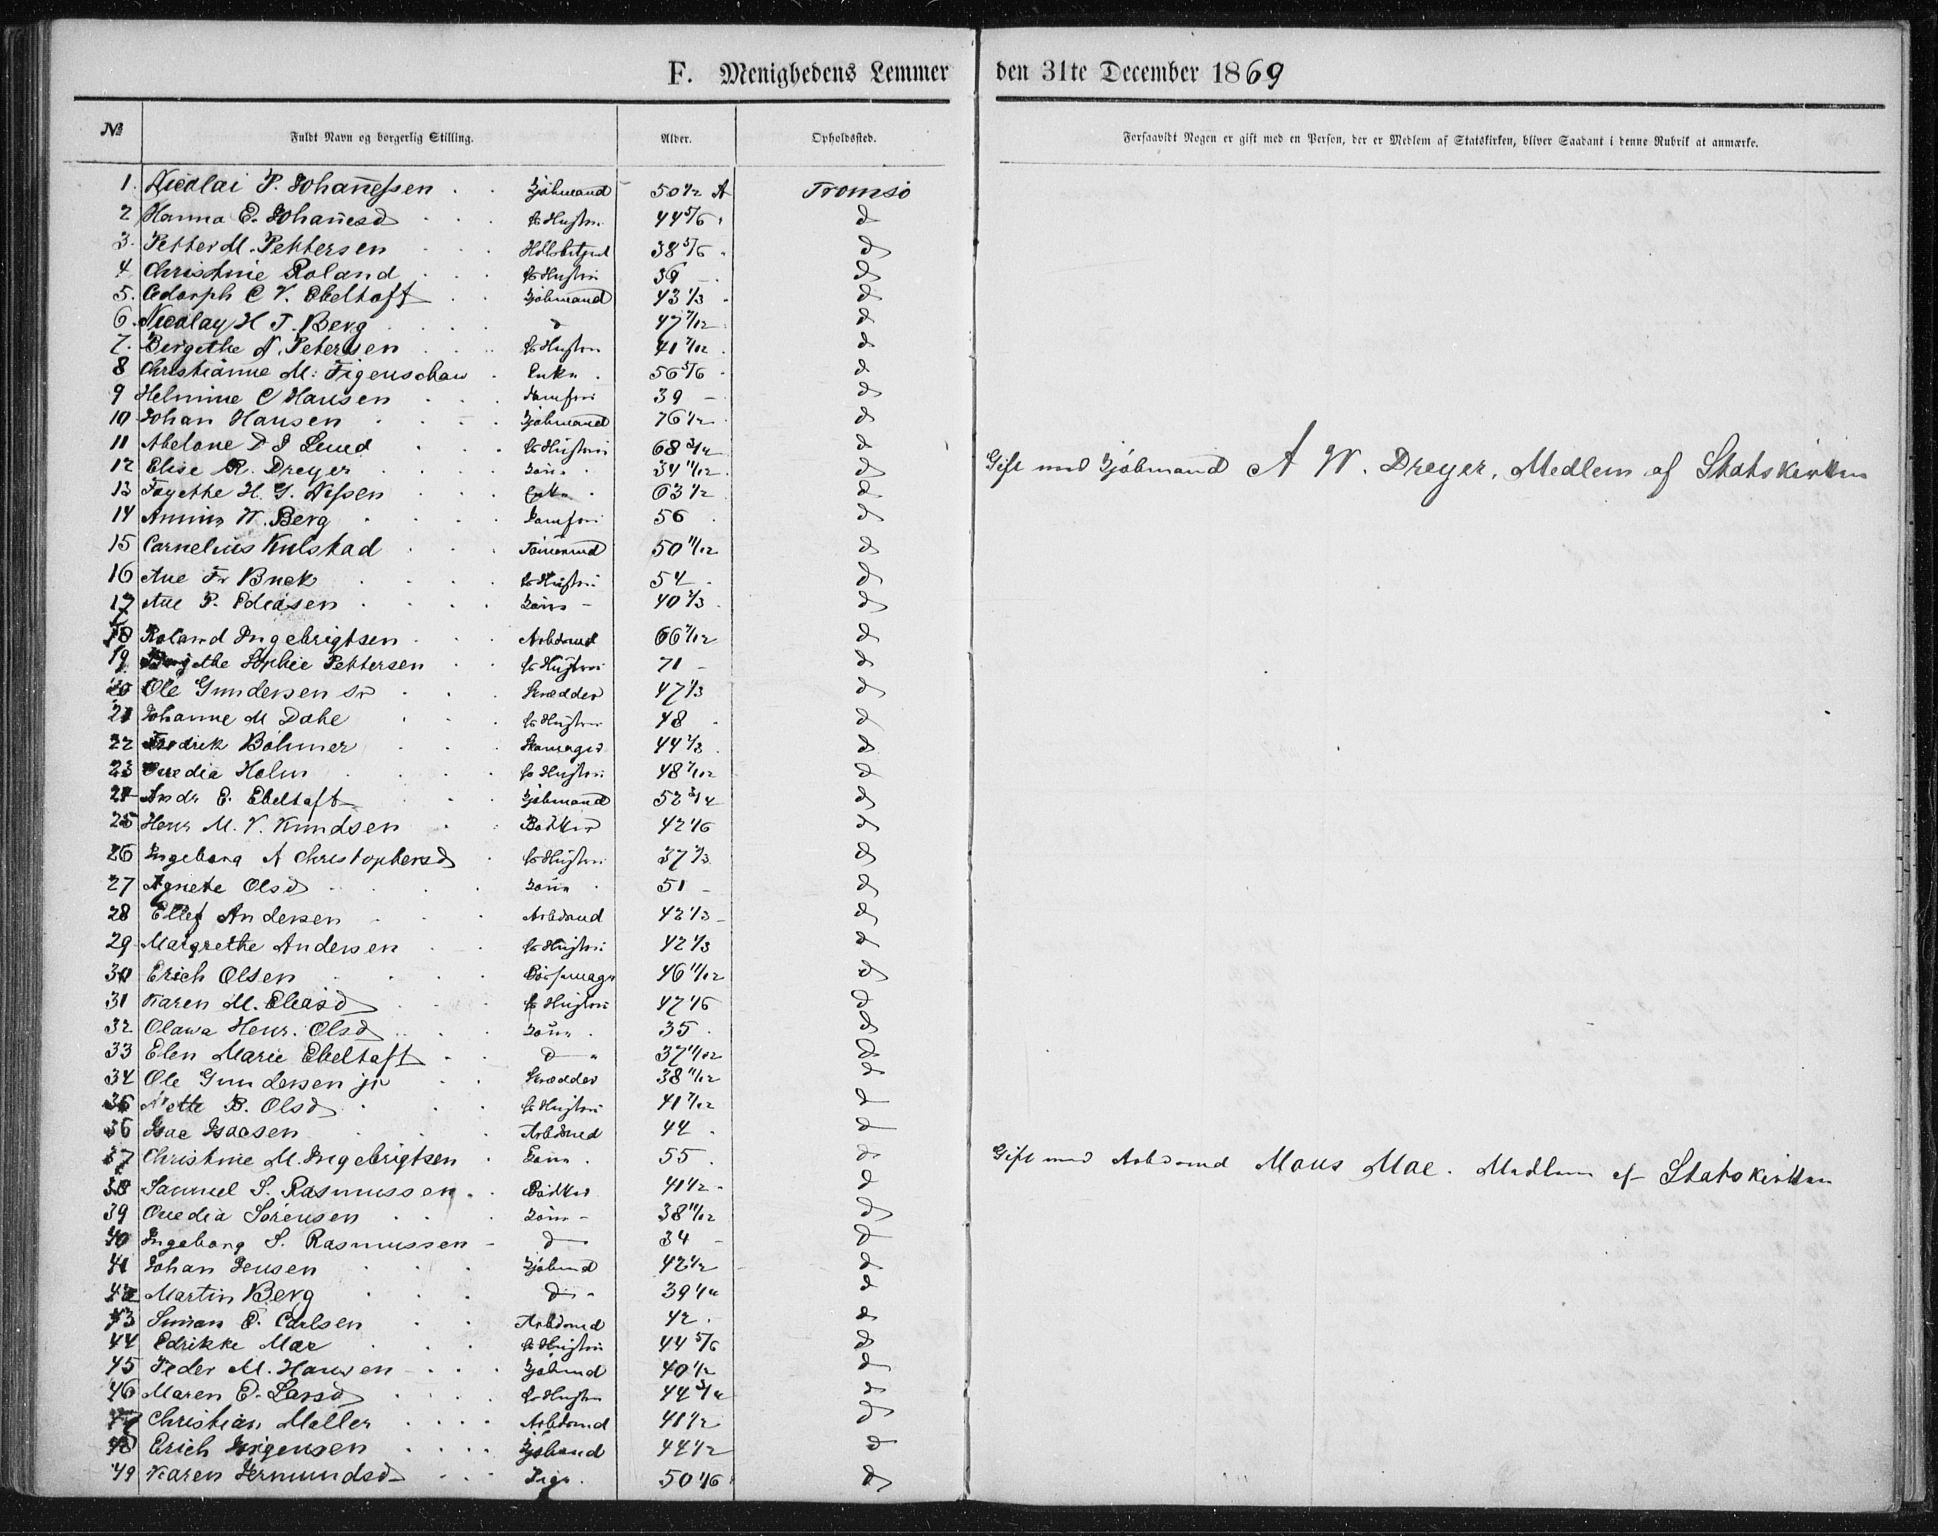 F. Menighedens Lemmer den 31te December 1869
№ Fuldt Navn og borgerlig Stilling. Alder. Opholdssted. Forsaavidt Nogen er gift med en Person, der er Medlem af Statskirken, bliver Saadant i denne Rubrik at anmærke.
1. Nicolai P. Johanesen Kjöbmand 50 1/2 A Tromsö
2 Hanna E. Johanesd Hustru 44 5/6 d
3. Petter M. Pettersen 38 5/6 d
4 Christine Roland Hustru 39 - d
5. Adolph C V. Ebeltoft Kjöbmand 43 1/3 d
6. Nicolay H J. Berg d 47 7/12 d
7. Bergethe N. Petersen Hustru 41 7/12 d
8 Christianne M. Figenschau Enke 56 5/6 d
9 Helmine C Hansen Jomfru 39 - d
10 Johan Hansen Kjöbmand 76 1/2 d
11 Abelone D J Lund Hustru 68 3/4 d
12 Elise R. Dreyer Kone 34 11/12 d Gift med Kjöbmand A W. Dreyer, Medlem af Statskirken
13 H. J. Nissen Enke 63 1/2 d
14 W. Berg Jomfru 56 d
15 Cornelius Kulstad 50 11/12 d
16 Ane Fr Buck Hustru 54 d
17 Ane P. Kone 40 2/3 d
18 Roland Ingebrigtsen Arbdmd 66 7/12 d
19 Sophie Pettersen Hustru 71 - d
20 Ole Gundersen sr Skrædder 47 1/3 d
21 Johanne M Dahe Hustru 48 d
22 Fredrik Böhmer Skomager 44 1/3 d
23 Ovedia Holm Hustru 48 7/12 d
24 Andr E. Ebeltoft Kjöbmand 52 3/4 d
25 Henr M. V. Knudsen Bödker 42 1/6 d
26 Ingeborg A Christophersd Hustru 37 1/3 d
27 Agnete Olsd Kone 51 - d
28 Ellef Andersen Arbdmd 42 1/3 d
29 Margrethe Andersen Hustru 42 1/3 d
30 Erich Olsen 46 11/12 d
31 Karen M. Eliasd Hustru 47 1/6 d
32 Olava Henr. Olsd Kone 35 d
33 Elen Marie Ebeltoft d 37 11/12 d
34 Ole Gundersen jr Skrædder 38 11/12 d
35 Mette B. Olsd Hustru 41 7/12 d
36 Isac Isacsen Arbdmd 44 d
37 Christine M. Ingebrigtsen Kone 55 d Gift med Arbdmd Mons Moe. Medlem af Statskirken
38 Samuel S. Rasmussen Bödker 41 1/2 d
39 Ovedia Sörensen Kone 38 11/12 d
40 Ingeborg S. Rasmussen d 34 - d
41 Johan Jensen Kjöbmd 42 1/2 d
42 Martin Berg d 39 1/4 d
43 Simon E. Carlsen Arbdmd 42 d
44 Edrikke Moe Hustru 44 5/6 d
45 Peder M. Hansen Kjöbmd 40 1/2 d
46 Maren E. Larsd Hustru 44 3/4 d
47 Christian Möller Arbdmd 41 1/2 d
48 Erich Jörgensen Kjöbmd 44 1/2 d
49 Karen Jermundsd Pige 50 1/6 d